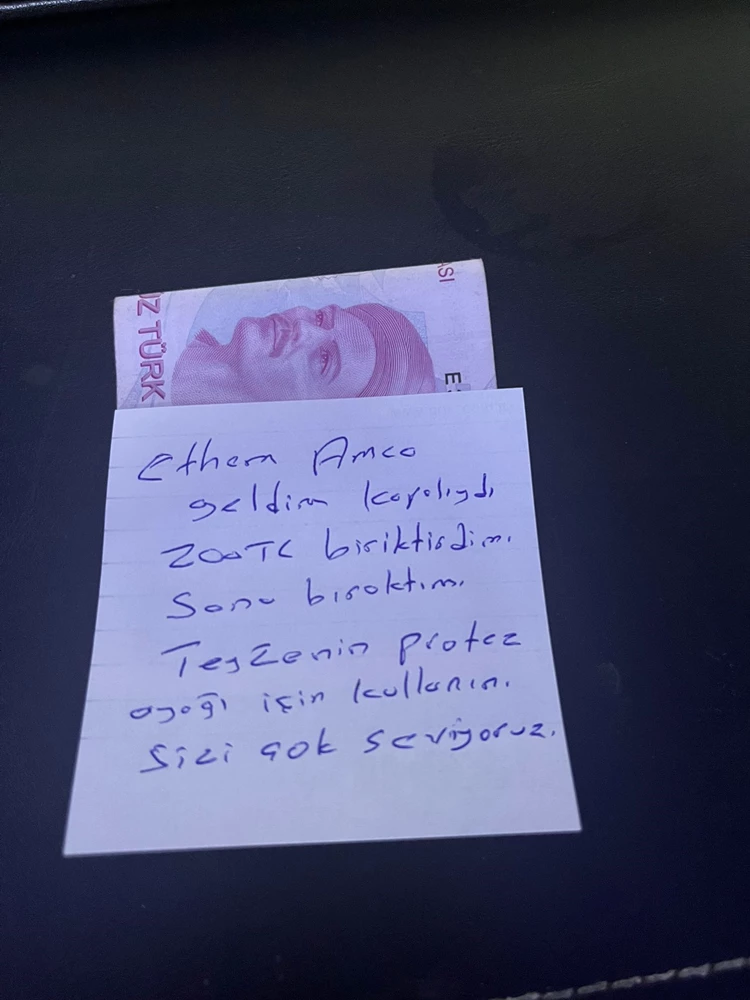 UZ TÜRK
ASI
E
Ethem Amca
geldim kapalıydı
200TL biriktirdim.
Sana bıraktım.
Teyzenin protez
ayağı için kullanın.
Sizi çok seviyoruz.